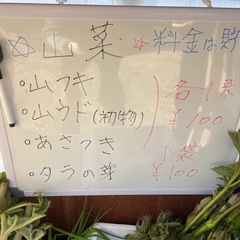 ☆山菜 ☆料金は貯
・山フキ
・山ウド(初物)
名一束
¥100
・あさつき
・タラの芽
1袋
¥100